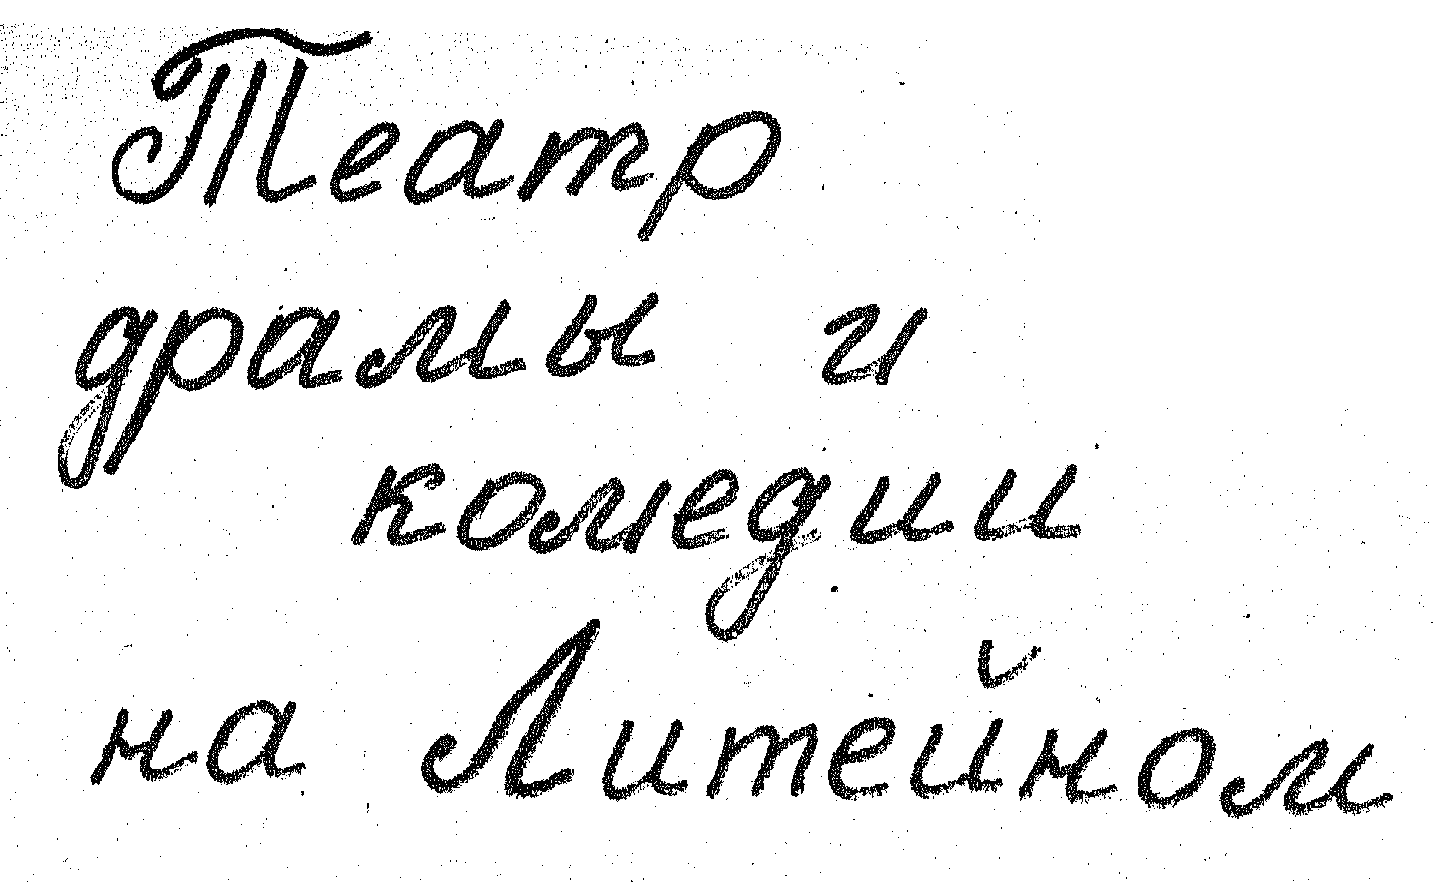 Театр
драмы и
комедии
на Литейном